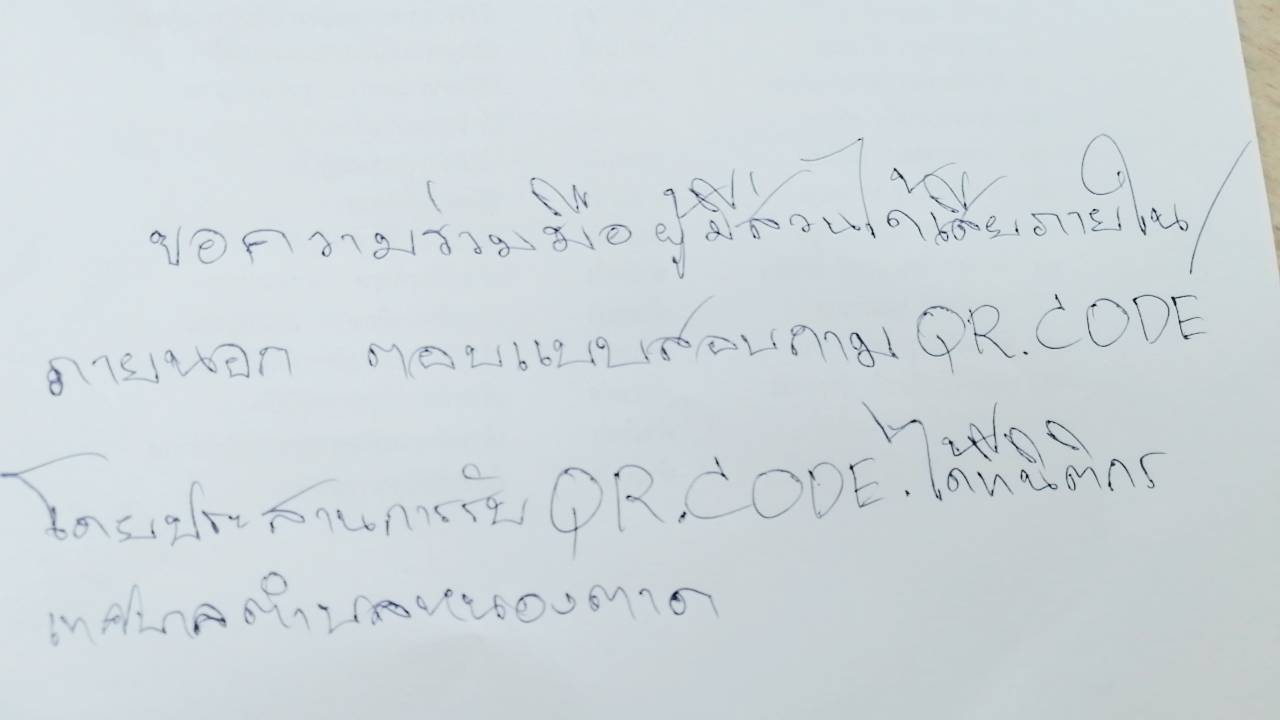 ขอความร่วมมือผู้มีส่วนได้เสียภายใน/
ภายนอก ตอบแบบสอบถาม QR.CODE
โดยประสานการรับ QR.CODE.ได้ที่นิติกร
เทศบาลตำบลหนองตาด